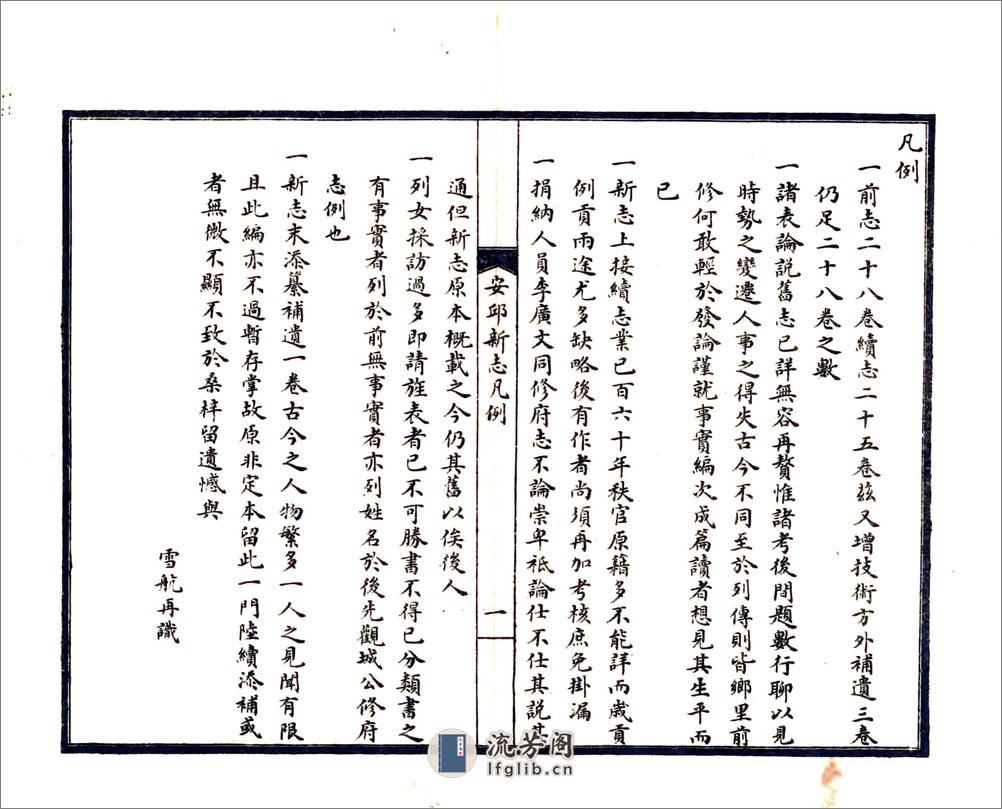 凡例
一前志二十八卷續志二十五卷茲又增技術方外補遺三卷
仍足二十八卷之數
一諸表論說舊志已詳無容再贅惟諸考後間題數行聊以見
時勢之變遷人事之得失古今不同至於列傳則皆鄉里前
修何敢輕於發論謹就事實編次成篇讀者想見其生平而
已
一新志上接續志業已百六十年秩官原籍多不能詳而歲貢
例貢兩途尤多缺略後有作者尚須再加考核庶免掛漏
一捐納人員李廣文同修府志不論崇卑祇論仕不仕其說甚
安邱新志凡例
一
通但新志原本概載之今仍其舊以俟後人
一列女採訪過多即請旌表者已不可勝書不得已分類書之
有事實者列於前無事實者亦列姓名於後先觀城公修府
志例也
一新志末添纂補遺一卷古今之人物繁多一人之見聞有限
且此編亦不過暫存掌故原非定本留此一門陸續添補或
者無微不顯不致於桑梓留遺憾與
雪航再識
流芳阁
lfglib.cn